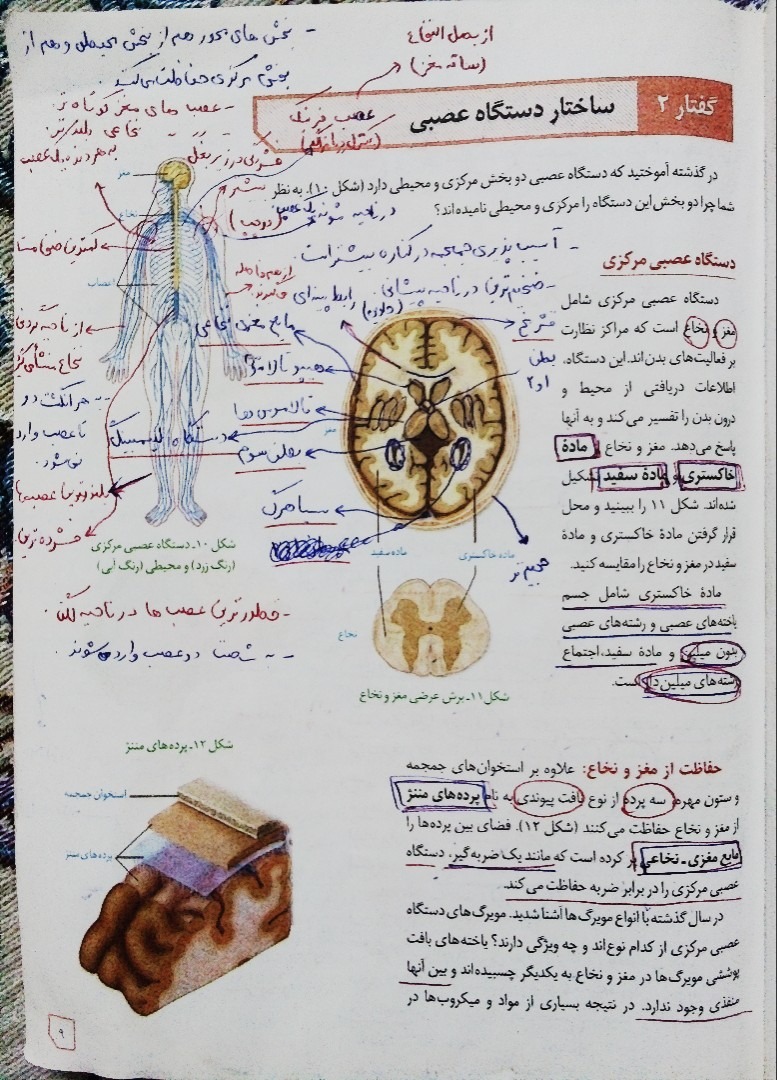 - بخش های محور هم از بخش محیطی و هم از
بخش مرکزی حفاظت می‌کند
از بصل النخاع
(ساقه مغز)
گفتار ۲
ساختار دستگاه عصبی
عصب
- عصب های مغز کوتاه تر
نخاعی بلندتر
در گذشته آموختید که دستگاه عصبی دو بخش مرکزی و محیطی دارد (شکل ۱۰). به نظر
شما چرا دو بخش این دستگاه را مرکزی و محیطی نامیده‌اند؟
مغز
نخاع
اعصاب
- آسیب پذیری جمجمه در کناره بیشتر است
در ناحیه پیشانی
مایع مغزی نخاعی
بطن
۱و۲
هیپوتالاموس
تالاموس‌ها
دستگاه لیمبیک
بطن سوم
سیاهرگ
مغز
شکل ۱۰ـ دستگاه عصبی مرکزی
(رنگ زرد) و محیطی (رنگ آبی)
ماده سفید
ماده خاکستری
حجیم تر
- قطورترین عصب ها در ناحیه لگن
- به شصت دو عصب وارد می‌شوند
نخاع
شکل ۱۱ـ برش عرضی مغز و نخاع
دستگاه عصبی مرکزی
دستگاه عصبی مرکزی شامل
مغز و نخاع است که مراکز نظارت
بر فعالیت‌های بدن‌اند. این دستگاه،
اطلاعات دریافتی از محیط و
درون بدن را تفسیر می‌کند و به آنها
پاسخ می‌دهد. مغز و نخاع از مادهٔ
خاکستری و مادهٔ سفید تشکیل
شده‌اند. شکل ۱۱ را ببینید و محل
قرار گرفتن مادهٔ خاکستری و مادهٔ
سفید در مغز و نخاع را مقایسه کنید.
مادهٔ خاکستری شامل جسم
یاخته‌های عصبی و رشته‌های عصبی
بدون میلین و مادهٔ سفید، اجتماع
رشته‌های میلین‌دار است.
شکل ۱۲ـ پرده‌های مننژ
استخوان جمجمه
پرده‌های مننژ
حفاظت از مغز و نخاع: علاوه بر استخوان‌های جمجمه
و ستون مهره، سه پرده از نوع بافت پیوندی به نام پرده‌های مننژ
از مغز و نخاع حفاظت می‌کنند (شکل ۱۲). فضای بین پرده‌ها را
مایع مغزی ـ نخاعی پر کرده است که مانند یک ضربه‌گیر، دستگاه
عصبی مرکزی را در برابر ضربه حفاظت می‌کند.
در سال گذشته با انواع مویرگ‌ها آشنا شدید. مویرگ‌های دستگاه
عصبی مرکزی از کدام نوع‌اند و چه ویژگی دارند؟ یاخته‌های بافت
پوششی مویرگ‌ها در مغز و نخاع به یکدیگر چسبیده‌اند و بین آنها
منفذی وجود ندارد. در نتیجه بسیاری از مواد و میکروب‌ها در
۹